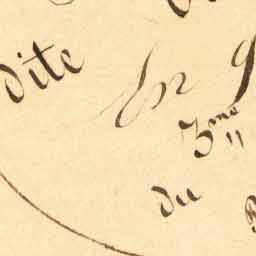 dite
En
3me
du